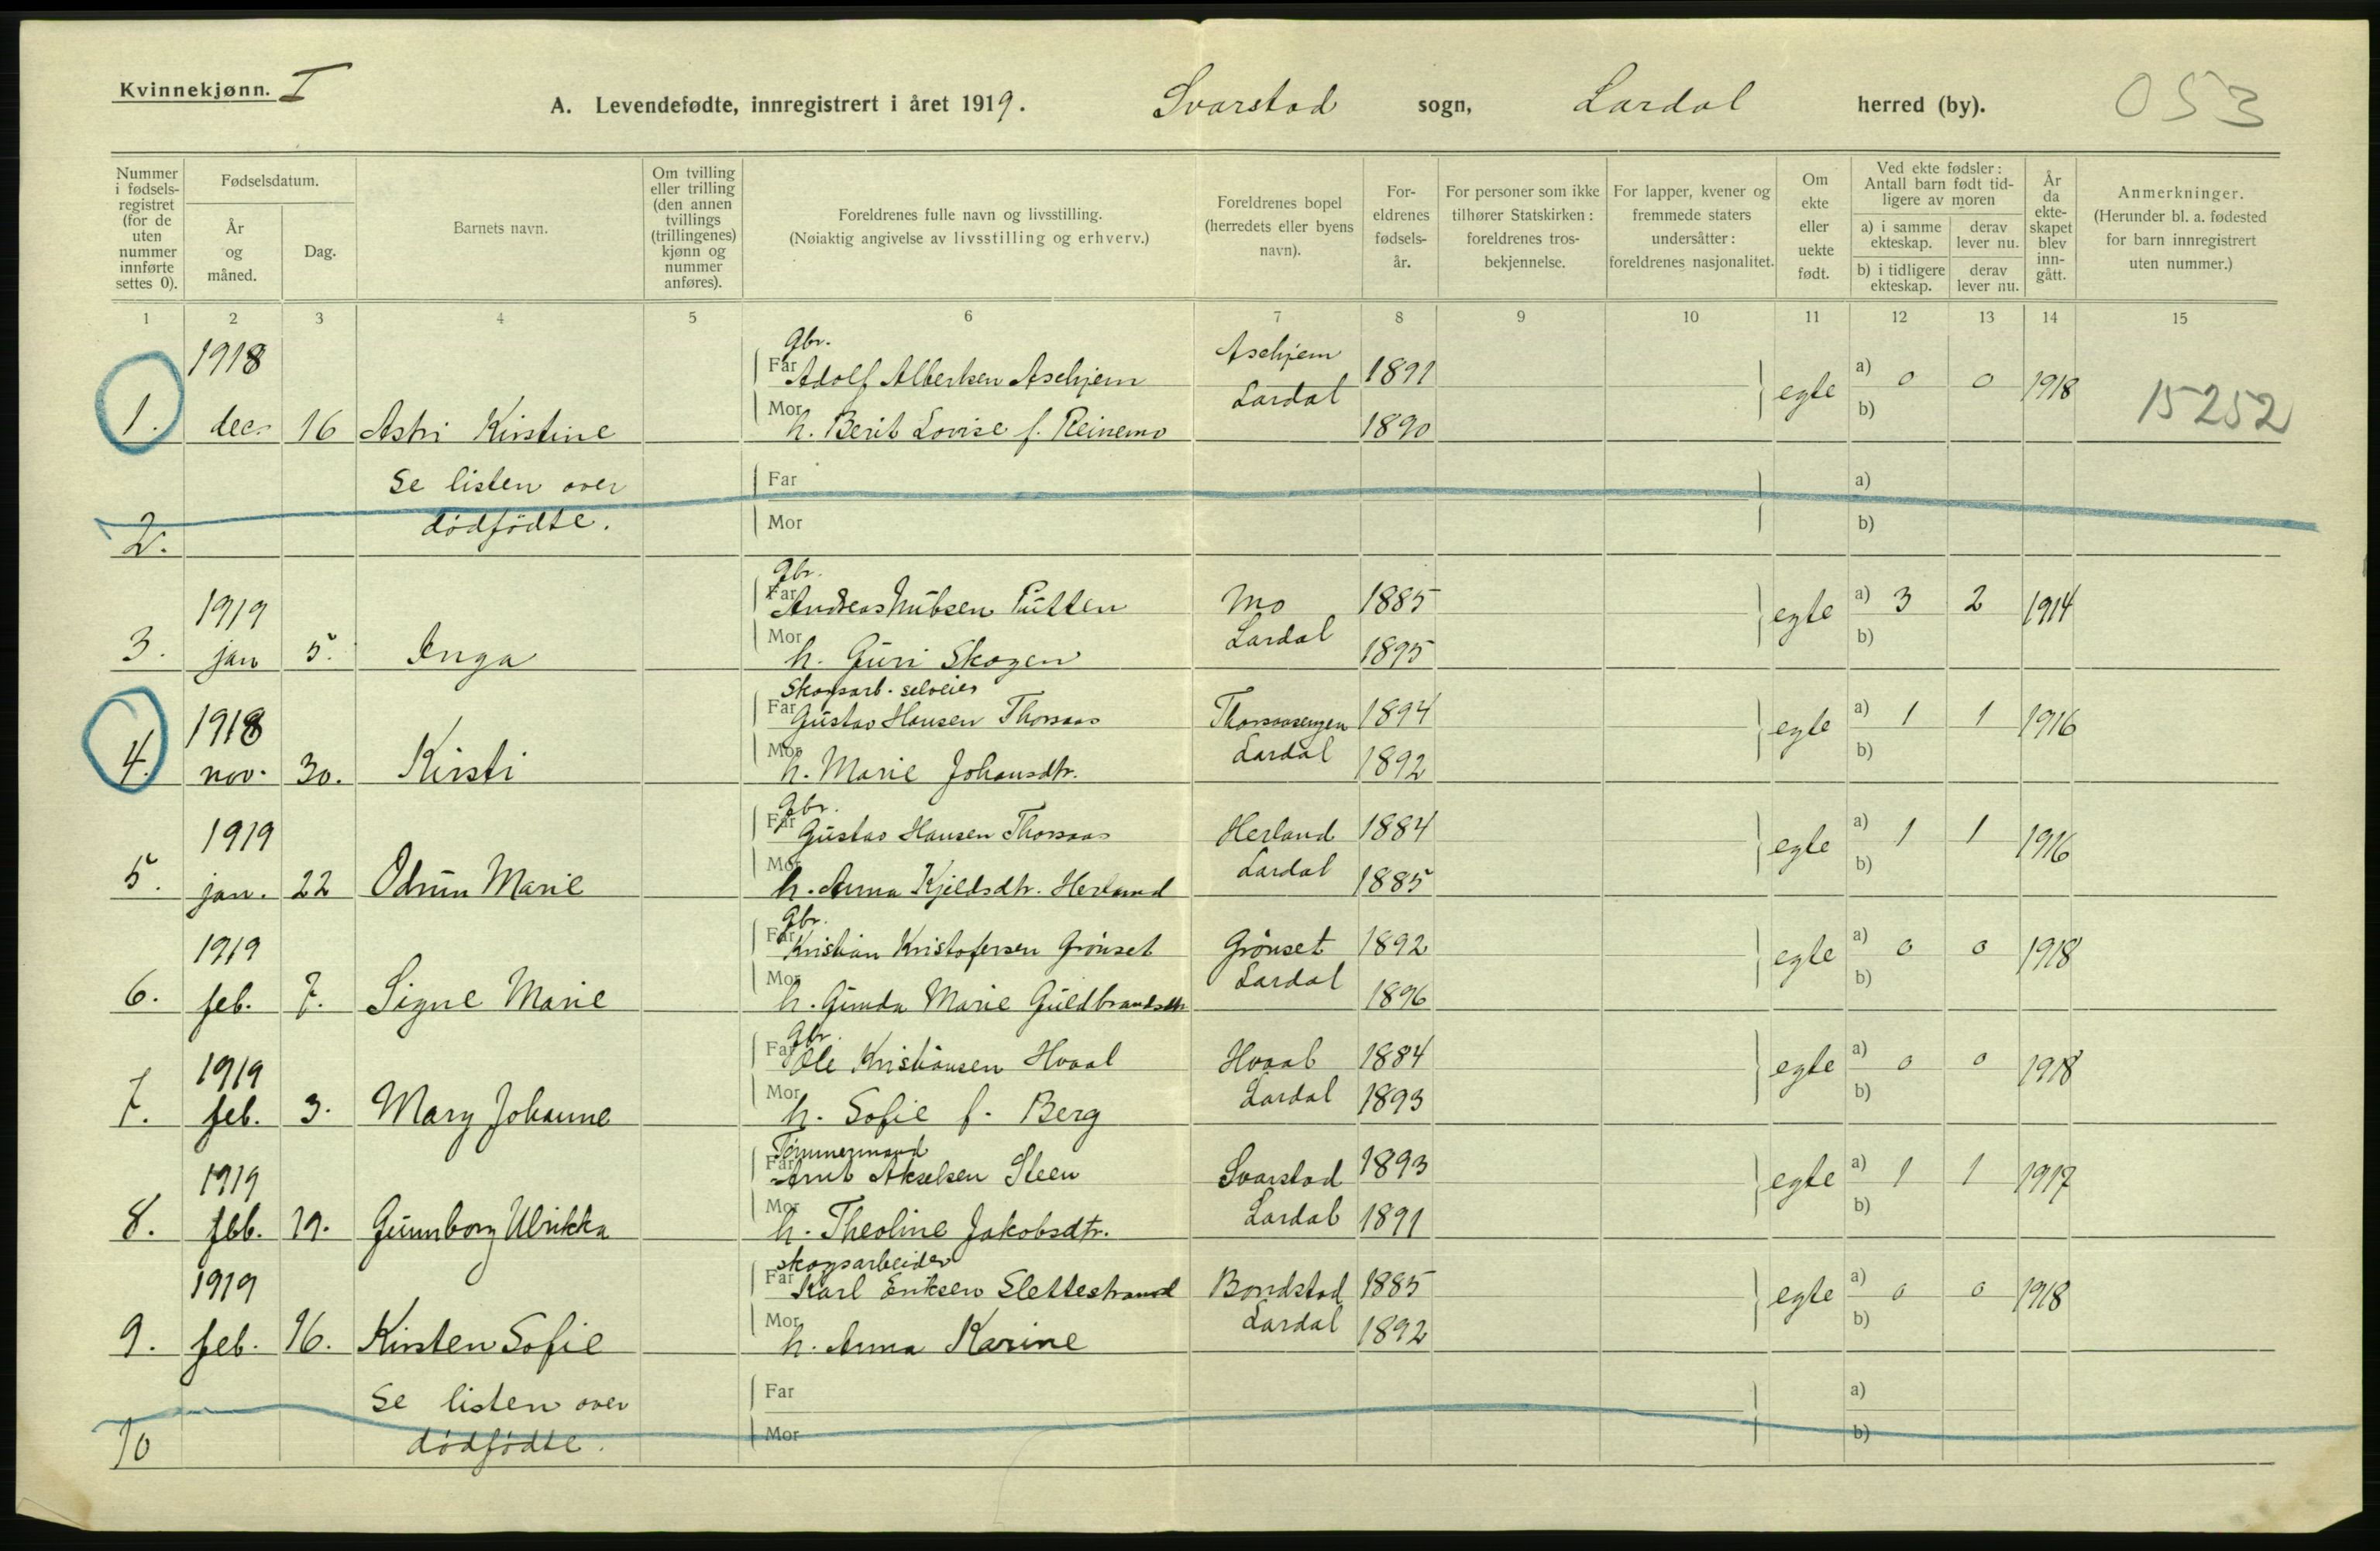 Kvinnekjønn. I
A. Levendefødte, innregistrert i året 1919. Svarstad sogn, Lardal herred (by). 053
Nummer i fødsels-registret (for de uten nummer innførte settes 0).
Fødselsdatum.
År og måned.
Dag.
Barnets navn.
Om tvilling eller trilling (den annen tvillings (trillingenes) kjønn og nummer anføres).
Foreldrenes fulle navn og livsstilling.
(Nøiaktig angivelse av livsstilling og erhverv.)
Foreldrenes bopel (herredets eller byens navn).
For-eldrenes fødsels-år.
For personer som ikke tilhører Statskirken: foreldrenes tros-bekjennelse.
For lapper, kvener og fremmede staters undersåtter: foreldrenes nasjonalitet.
Om ekte eller uekte født.
Ved ekte fødsler: Antall barn født tid-ligere av moren
a) i samme ekteskap. derav lever nu.
b) i tidligere ekteskap. derav lever nu.
År da ekte-skapet blev inn-gått.
Anmerkninger.
(Herunder bl. a. fødested for barn innregistrert uten nummer.)
1 2 3 4 5 6 7 8 9 10 11 12 13 14 15
1918 Gbr. Aschjem
Far Adolf Albertsen Aschjem Lardal 1891 egte a) 0 0 1918 15252
1. dec. 16 Astri Kirstine Mor h. Berit Lovise f. Reinemo 1890 b)
Se listen over Far a)
2. dødfødte. Mor b)
Gbr.
1919 Far Andreas Mo 1885 egte a) 3 2 1914
3. jan 5. Inga Mor h. Guri Skogen Lardal 1895 b)
Skogsarb. selveier
1918 Far Gustav Hansen Thorsaas 1894 egte a) 1 1 1916
4. nov. 30. Kirsti Mor h. Marie Johansdtr. Lardal 1892 b)
Gbr.
1919 Far Gustav Hansen Thorsaas Herland 1884 egte a) 1 1 1916
5. jan. 22 Odrun Marie Mor h. Anna Kjeldsdtr. Herland Lardal 1885 b)
Gbr.
1919 Far Kristian Kristofersen Grönset Grönset 1892 egte a) 0 0 1918
6. feb. 7. Signe Marie Mor h. Gunda Marie Guldbrandsdtr Lardal 1896 b)
Gbr.
1919 Far Ole Kristiansen Hvaal Hvaal 1884 egte a) 0 0 1918
7. feb. 3. Mary Johanne Mor h. Sofie f. Berg Lardal 1893 b)
Tømmermand
1919 Far Arnt Akselsen Steen Svarstad 1893 egte a) 1 1 1917
8. feb. 19. Gunnborg Ulrikka Mor h. Theoline Jakobsdtr. Lardal 1891 b)
skogsarbeider
1919 Far Karl Eriksen Slettestrand Bondstad 1885 egte a) 0 0 1918
9. feb. 16. Kirsten Sofie Mor h. Anna Karine Lardal 1892 b)
Se listen over Far a)
10 dødfødte. Mor b)